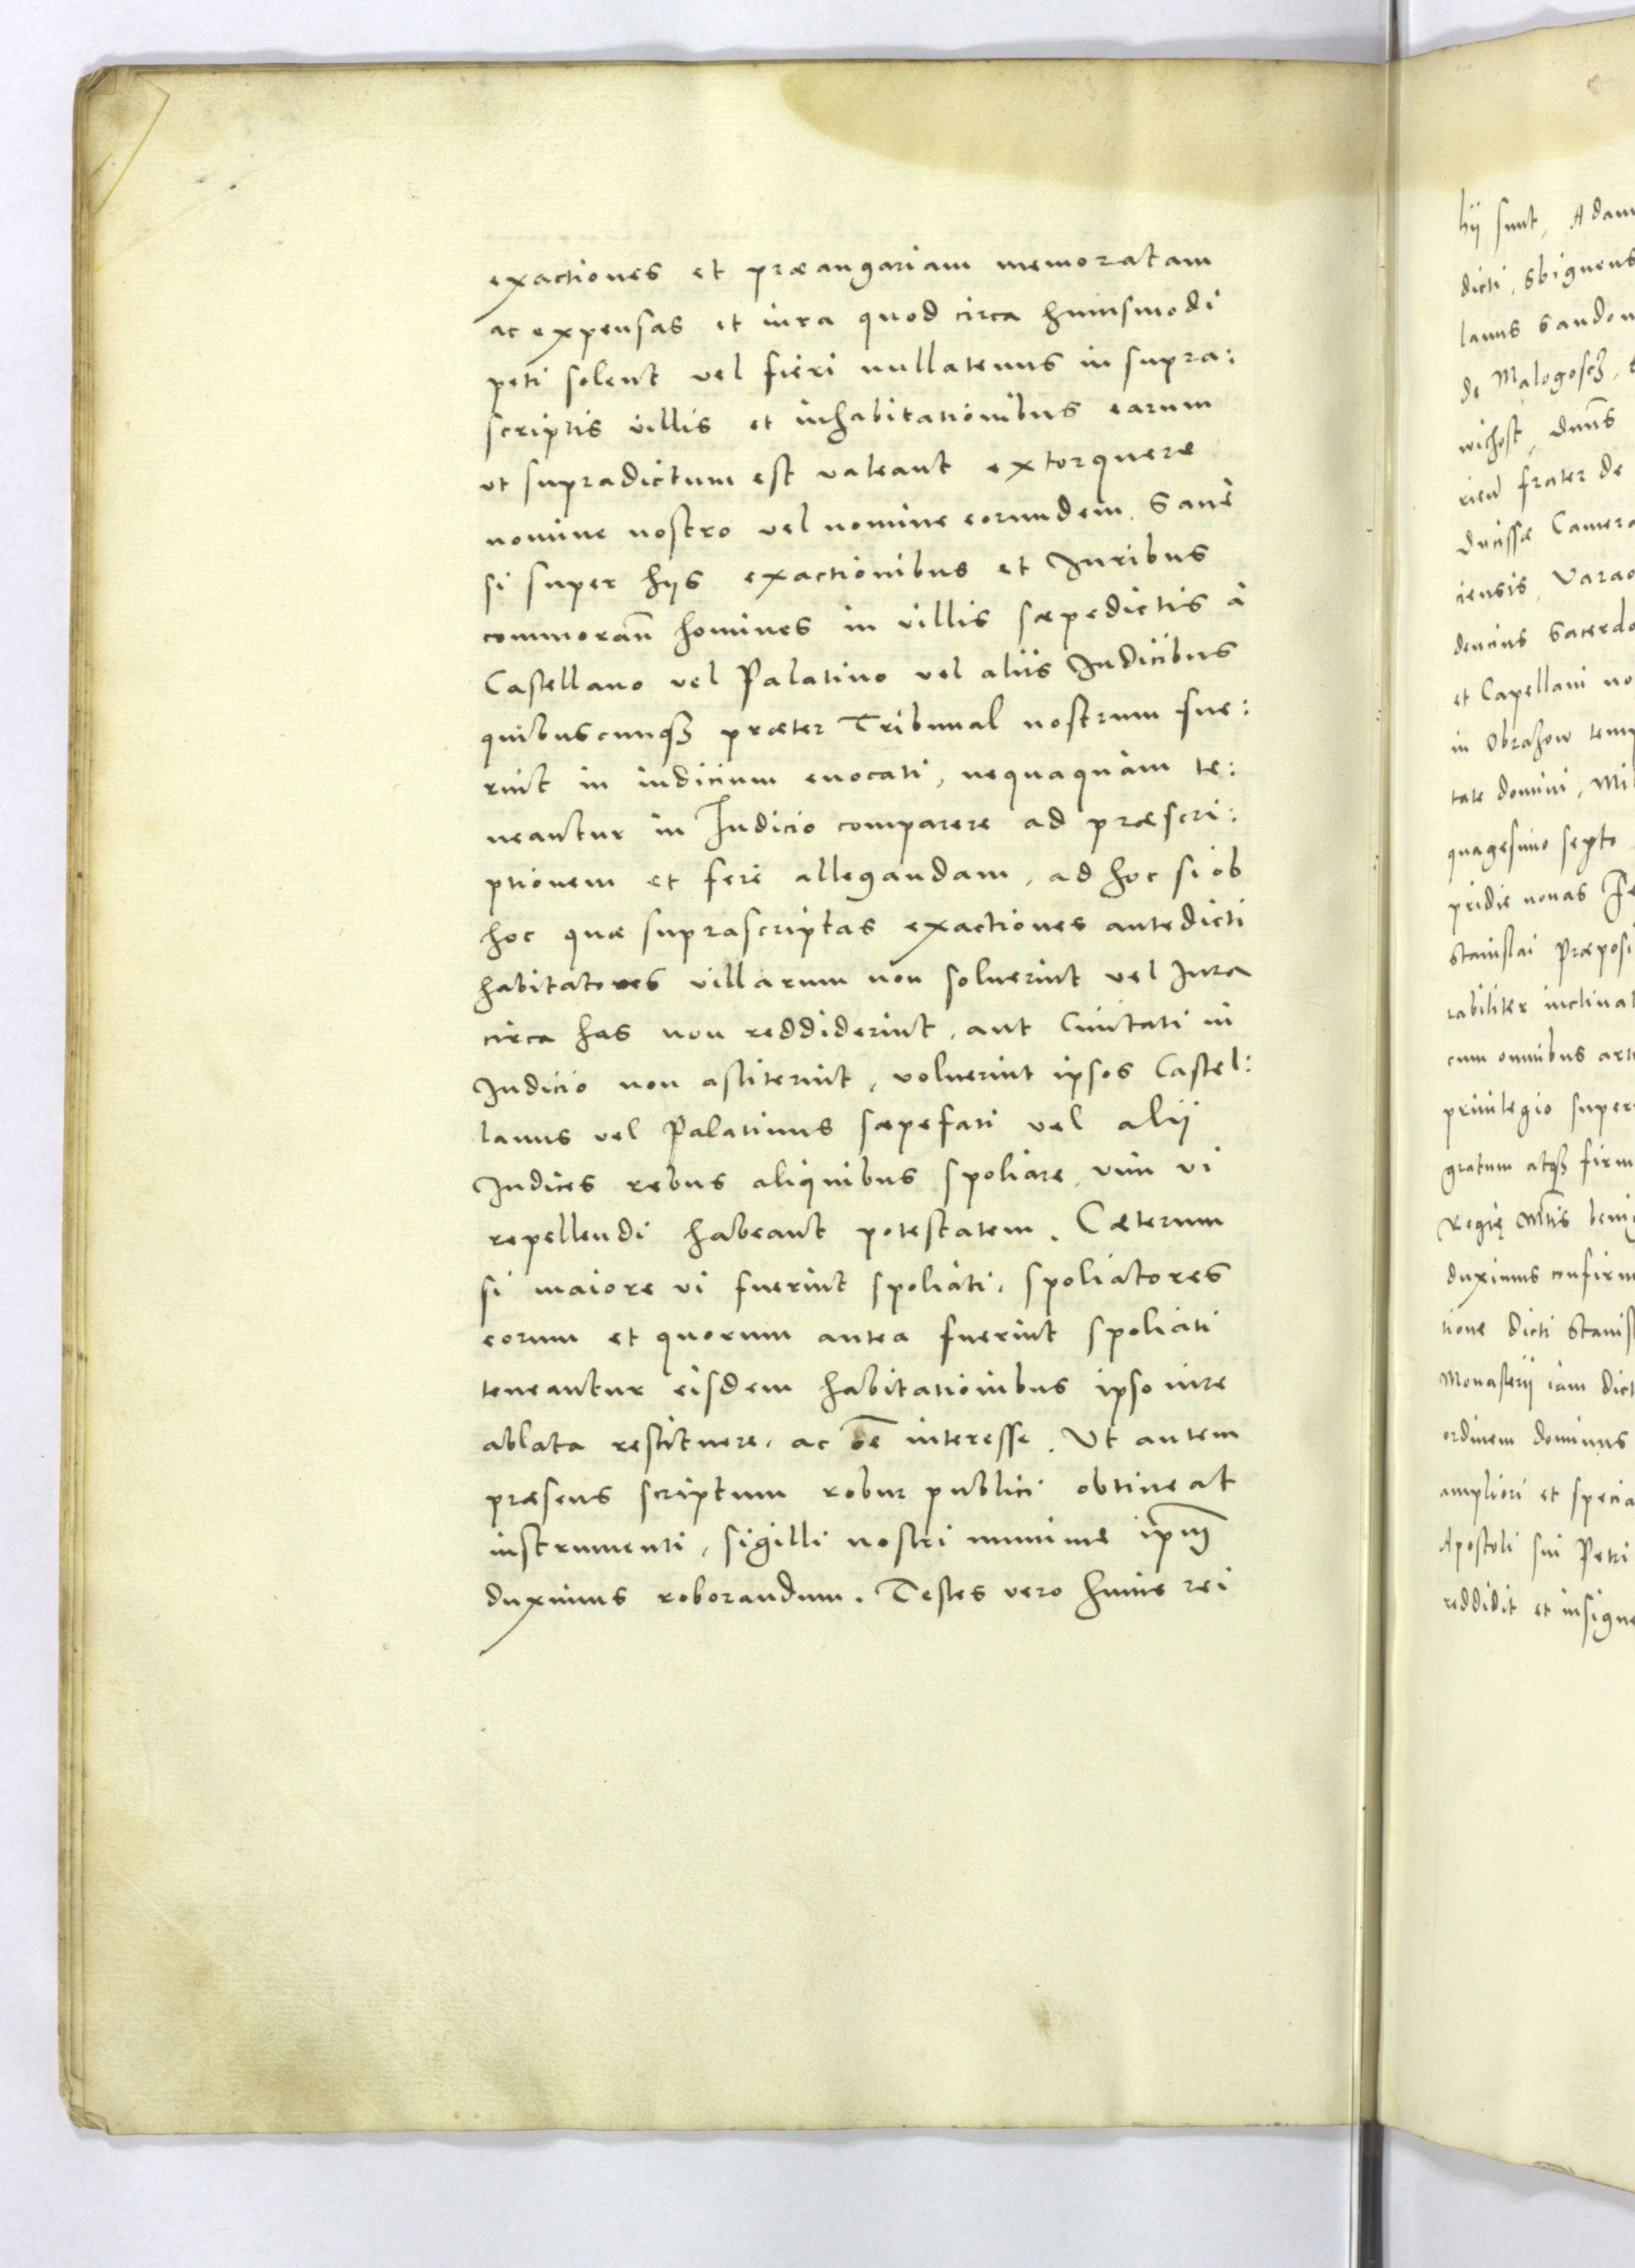 exactiones et præangariam memoratam
ac expensas et iura quod circa huiusmodi
peti solent vel fieri nullatenus in supra:
scriptis villis et inhabitationibus earum
ut supradictum est valeant extorquere
nomine nostro vel nomine eorundem. Sane
si super hijs exactionibus et Juribus
commorañ homines in villis sæpedictis à
Castellano vel Palatino vel aliis Judicibus
quibuscunqȝ præter Tribunal nostrum fue:
rint in iudicium euocati, nequaquàm te:
neantur in Judicio comparere ad præscri:
ptionem et fere allegandam, ad hoc si ob
hoc quæ suprascriptas exactiones antedicti
habitatores villarum non soluerint vel Jura
circa has non reddiderint, aut Ciuitati in
Judicio non astiterint, voluerint ipsos Castel:
lanus vel Palatinus sæpefati vel alij
Judices rebus aliquibus spoliare, vim vi
repellendi habeant potestatem. Cæterum
si maiore vi fuerint spoliati, spoliatores
eorum et quorum antea fuerint spoliati
teneantur eisdem habitationibus ipso iure
ablata restituere, ac õe interesse. Ut autem
præsens scriptum robur publici obtineat
instrumenti, sigilli nostri munime ipm̃
duximus roborandum. Testes vero huius rei
hij sunt, Adam
dicti, Sbigneus
lanus Sandom
de Malogoscȝ,
wichost, dnns
frater de
ducissæ Camera
ciensis, Varao
dencius Sacerdo
et Capellani no
in Obrazow temp
tate domini, Mil
quagesimo septo
pridie nonas Fe
Stanislai Præposi
rabiliter inclinat
cum omnibus arti
priuilegio super
gratum atqȝ firm
Regię Mtis beni
duximus confirm
tione dicti Stanisl
Monasterij iam dict
ordinem dominus
ampliori et specia
Apostoli sui Petri
reddidit et insigne